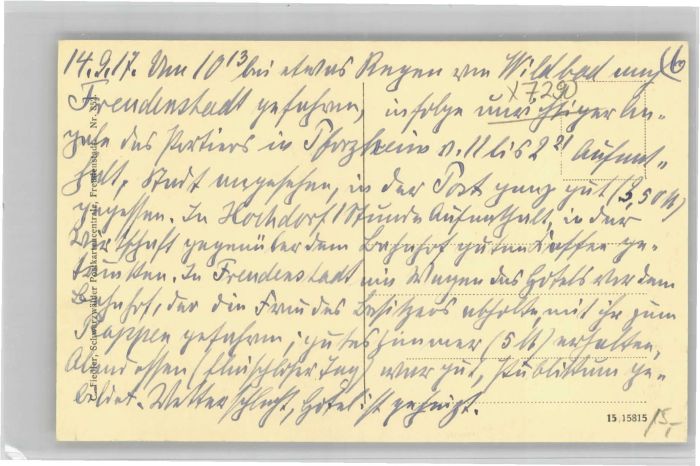 14.9.17. Um 10¹³ bei etwas Regen von Wildbad nach (6
Freudenstadt gefahren, infolge unrichtiger An-
x7290
gabe des Portiers in Pforzheim v. 11 bis 2²¹ Aufent-
halt, Stadt angesehen, in der Post ganz gut (3,50 M)
gegessen. In Hochdorf 1 Stunde Aufenthalt, in der
Wirtschaft gegenüber dem Bahnhof guten Kaffee ge-
trunken. In Freudenstadt ein Wagen des Hotels vor dem
Bahnhof, der die Frau des Besitzers abholte mit ihr zum
Rappen gefahren; gutes Zimmer (5 M) erhalten,
Abendessen (fleischloser Tag) war gut, Publikum ge-
bildet. Wetter schlecht, Hotel ist geheizt.
Fiedler, Schwarzwälder Postkartencentrale, Freudenstadt. Nr.
15 15815
15,-